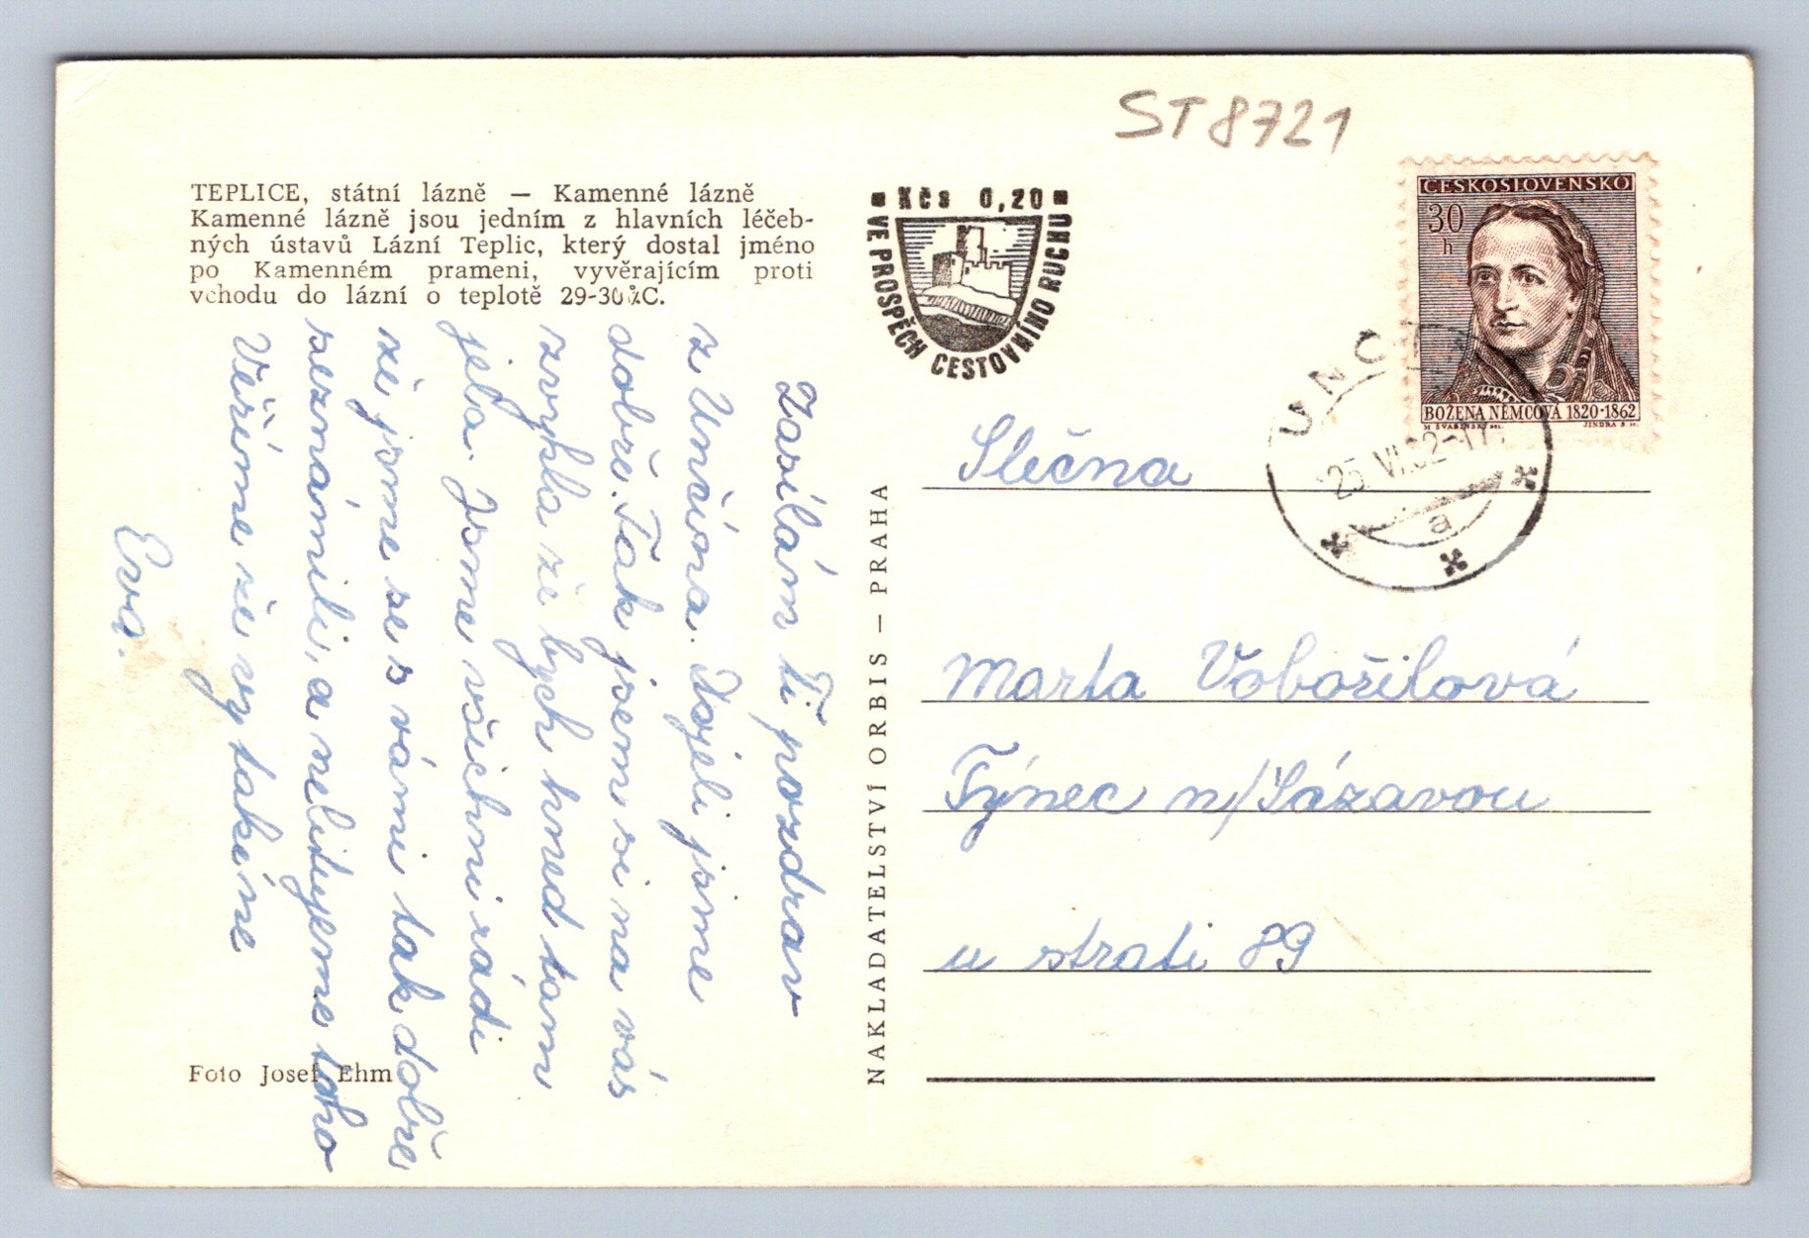 ST8721
TEPLICE, státní lázně — Kamenné lázně
Kamenné lázně jsou jedním z hlavních léčeb-
ných ústavů Lázní Teplic, který dostal jméno
po Kamenném prameni, vyvěrajícím proti
vchodu do lázní o teplotě 29-30 C.
Zasílám ti pozdrav
z Unčína. Dojeli jsme
dobře. Tak jsem si na vás
zvykla že bych hned tam
jela. Jsme všichni rádi
že jsme se s vámi tak dobře
seznámili, a nelitujeme toho
Věříme že vy také ne
Eva.
Foto Josef Ehm
NAKLADATELSTVÍ ORBIS — PRAHA
Kčs 0,20
VE PROSPĚCH CESTOVNÍHO RUCHU
ČESKOSLOVENSKO
30
h
BOŽENA NĚMCOVÁ 1820-1862
M. ŠVABINSKÝ DEL.
JINDRA S. SC.
25 VI.62-17
a
Slečna
Marta Vobořilová
Týnec n/Sázavou
u strati 89